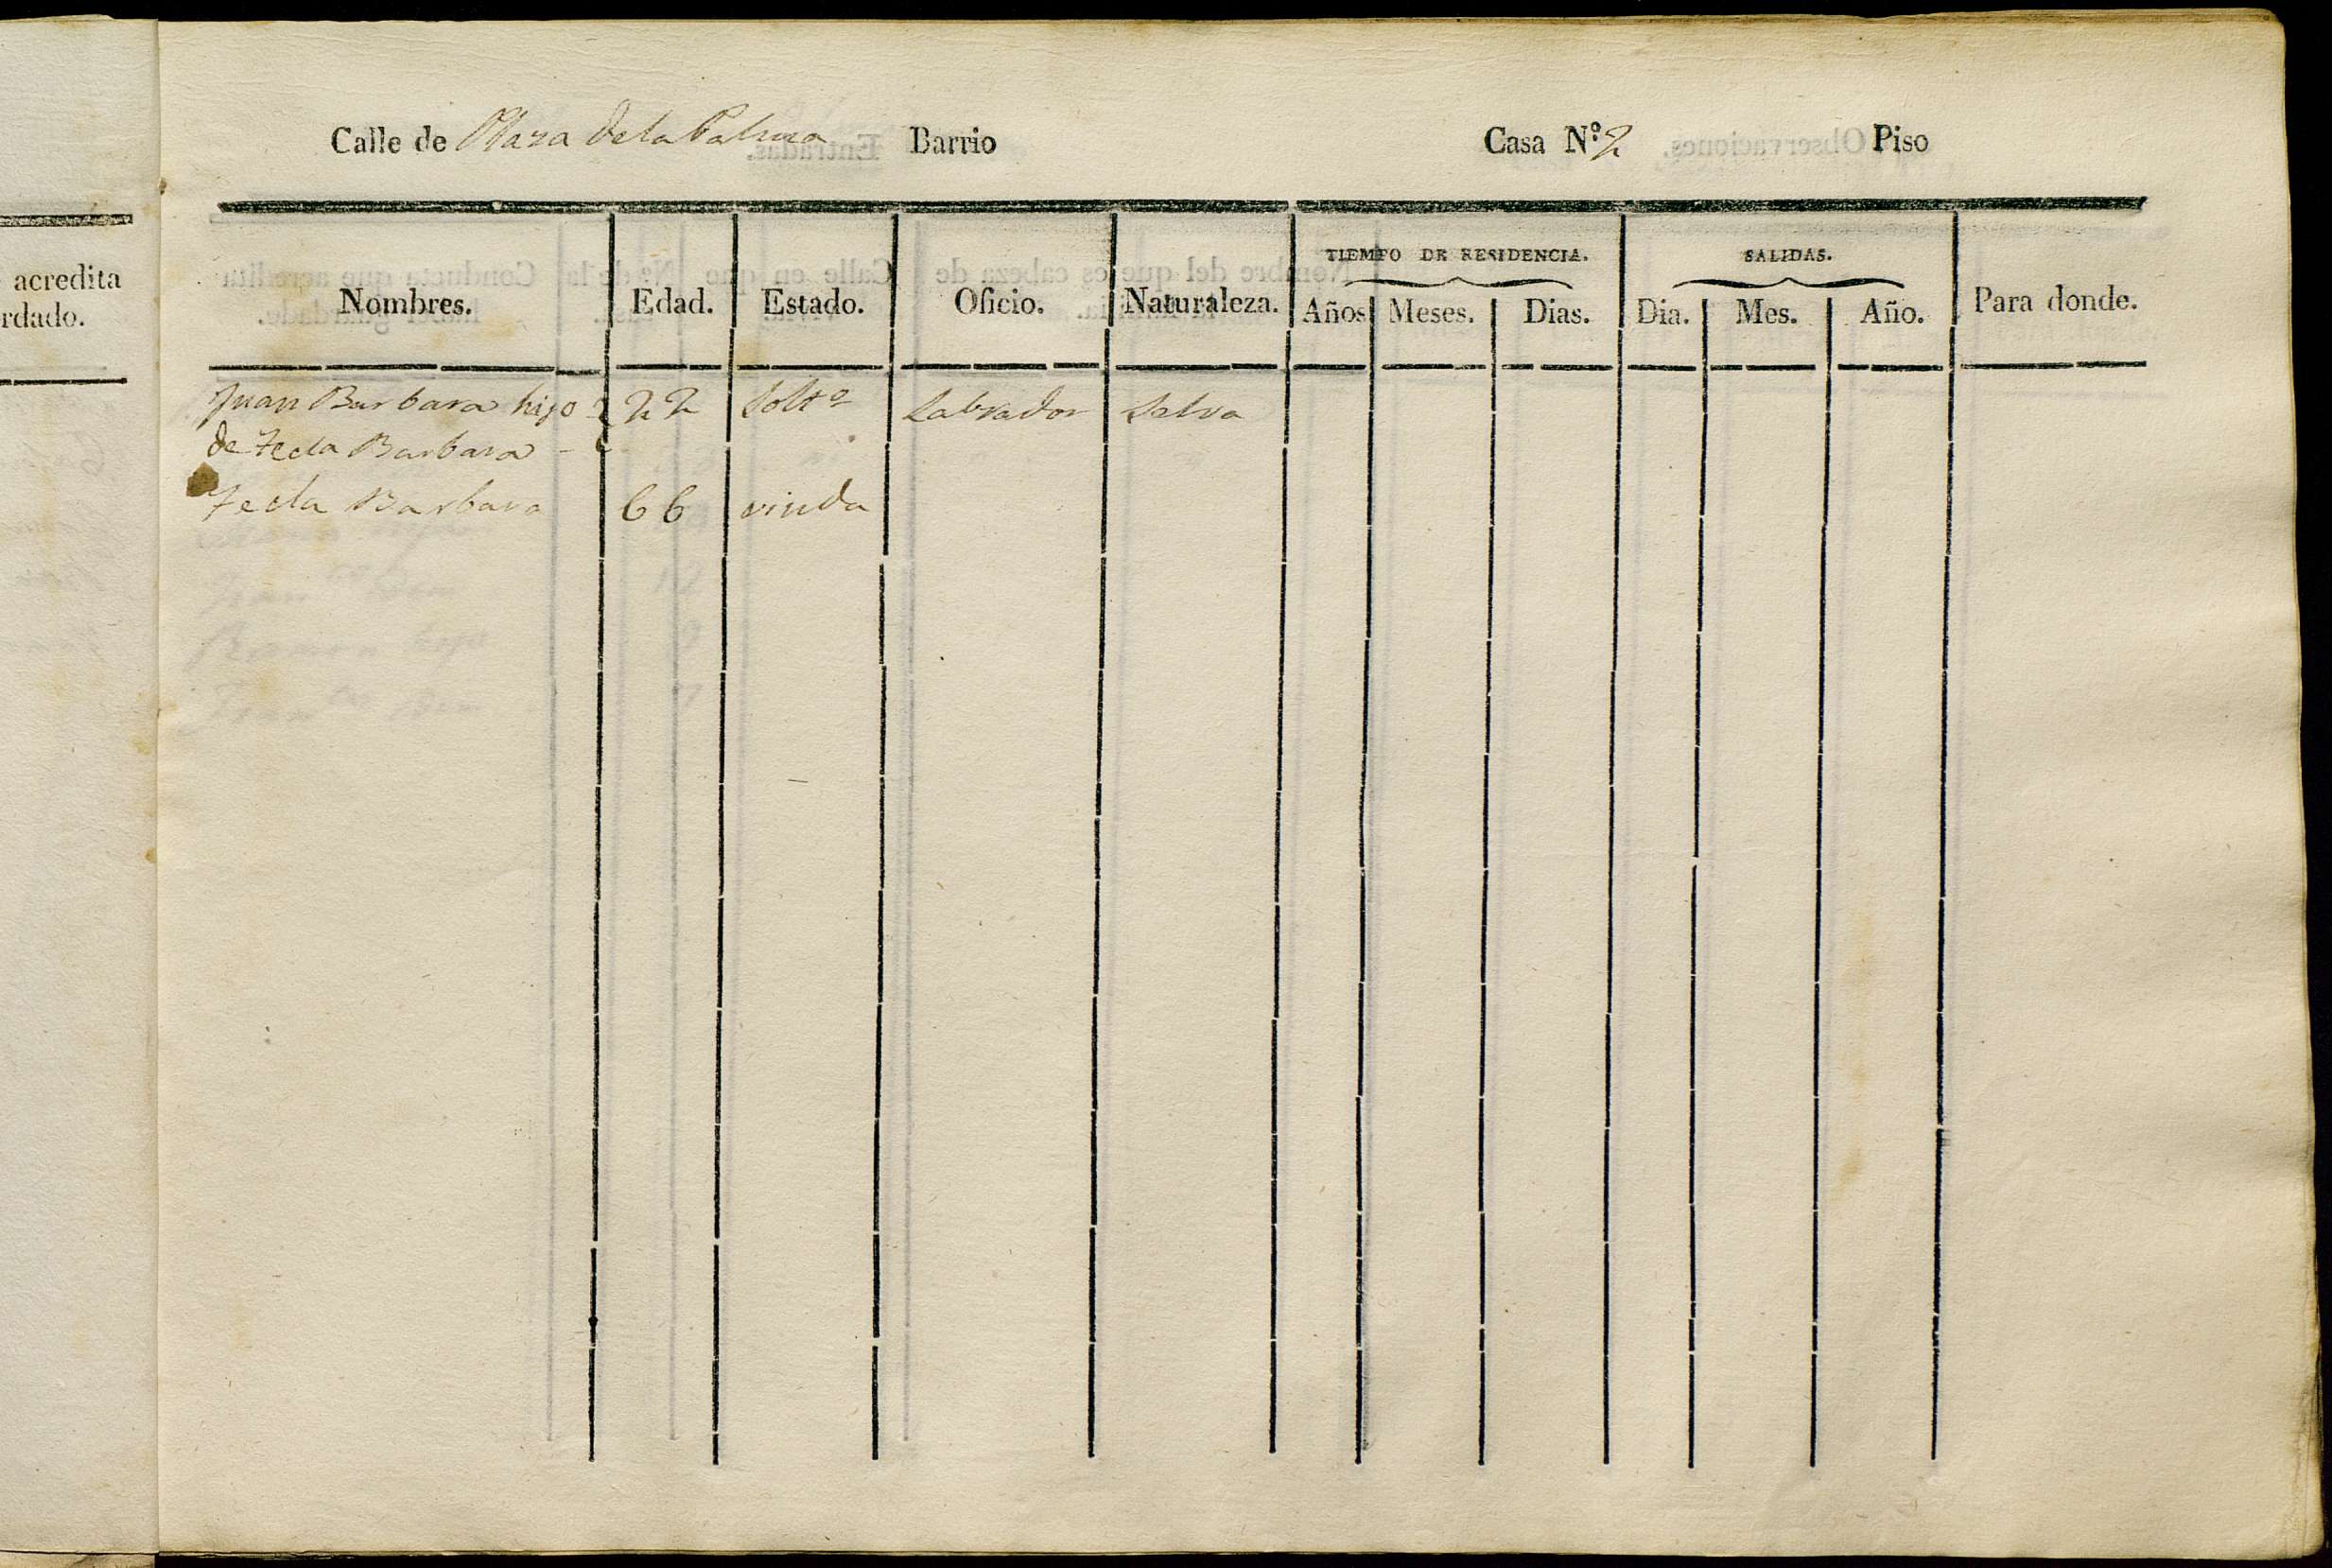 acredita
rdado.
Calle de Plaza de la Palma Barrio Casa N.º 2 Piso
TIEMPO DE RESIDENCIA. SALIDAS.
Nombres. Edad. Estado. Oficio. Naturaleza. Años Meses. Dias. Dia. Mes. Año. Para donde.
Juan Barbara hijo 22 Solt.o Labrador Selva
de Tecla Barbara
Tecla Barbara 66 viuda